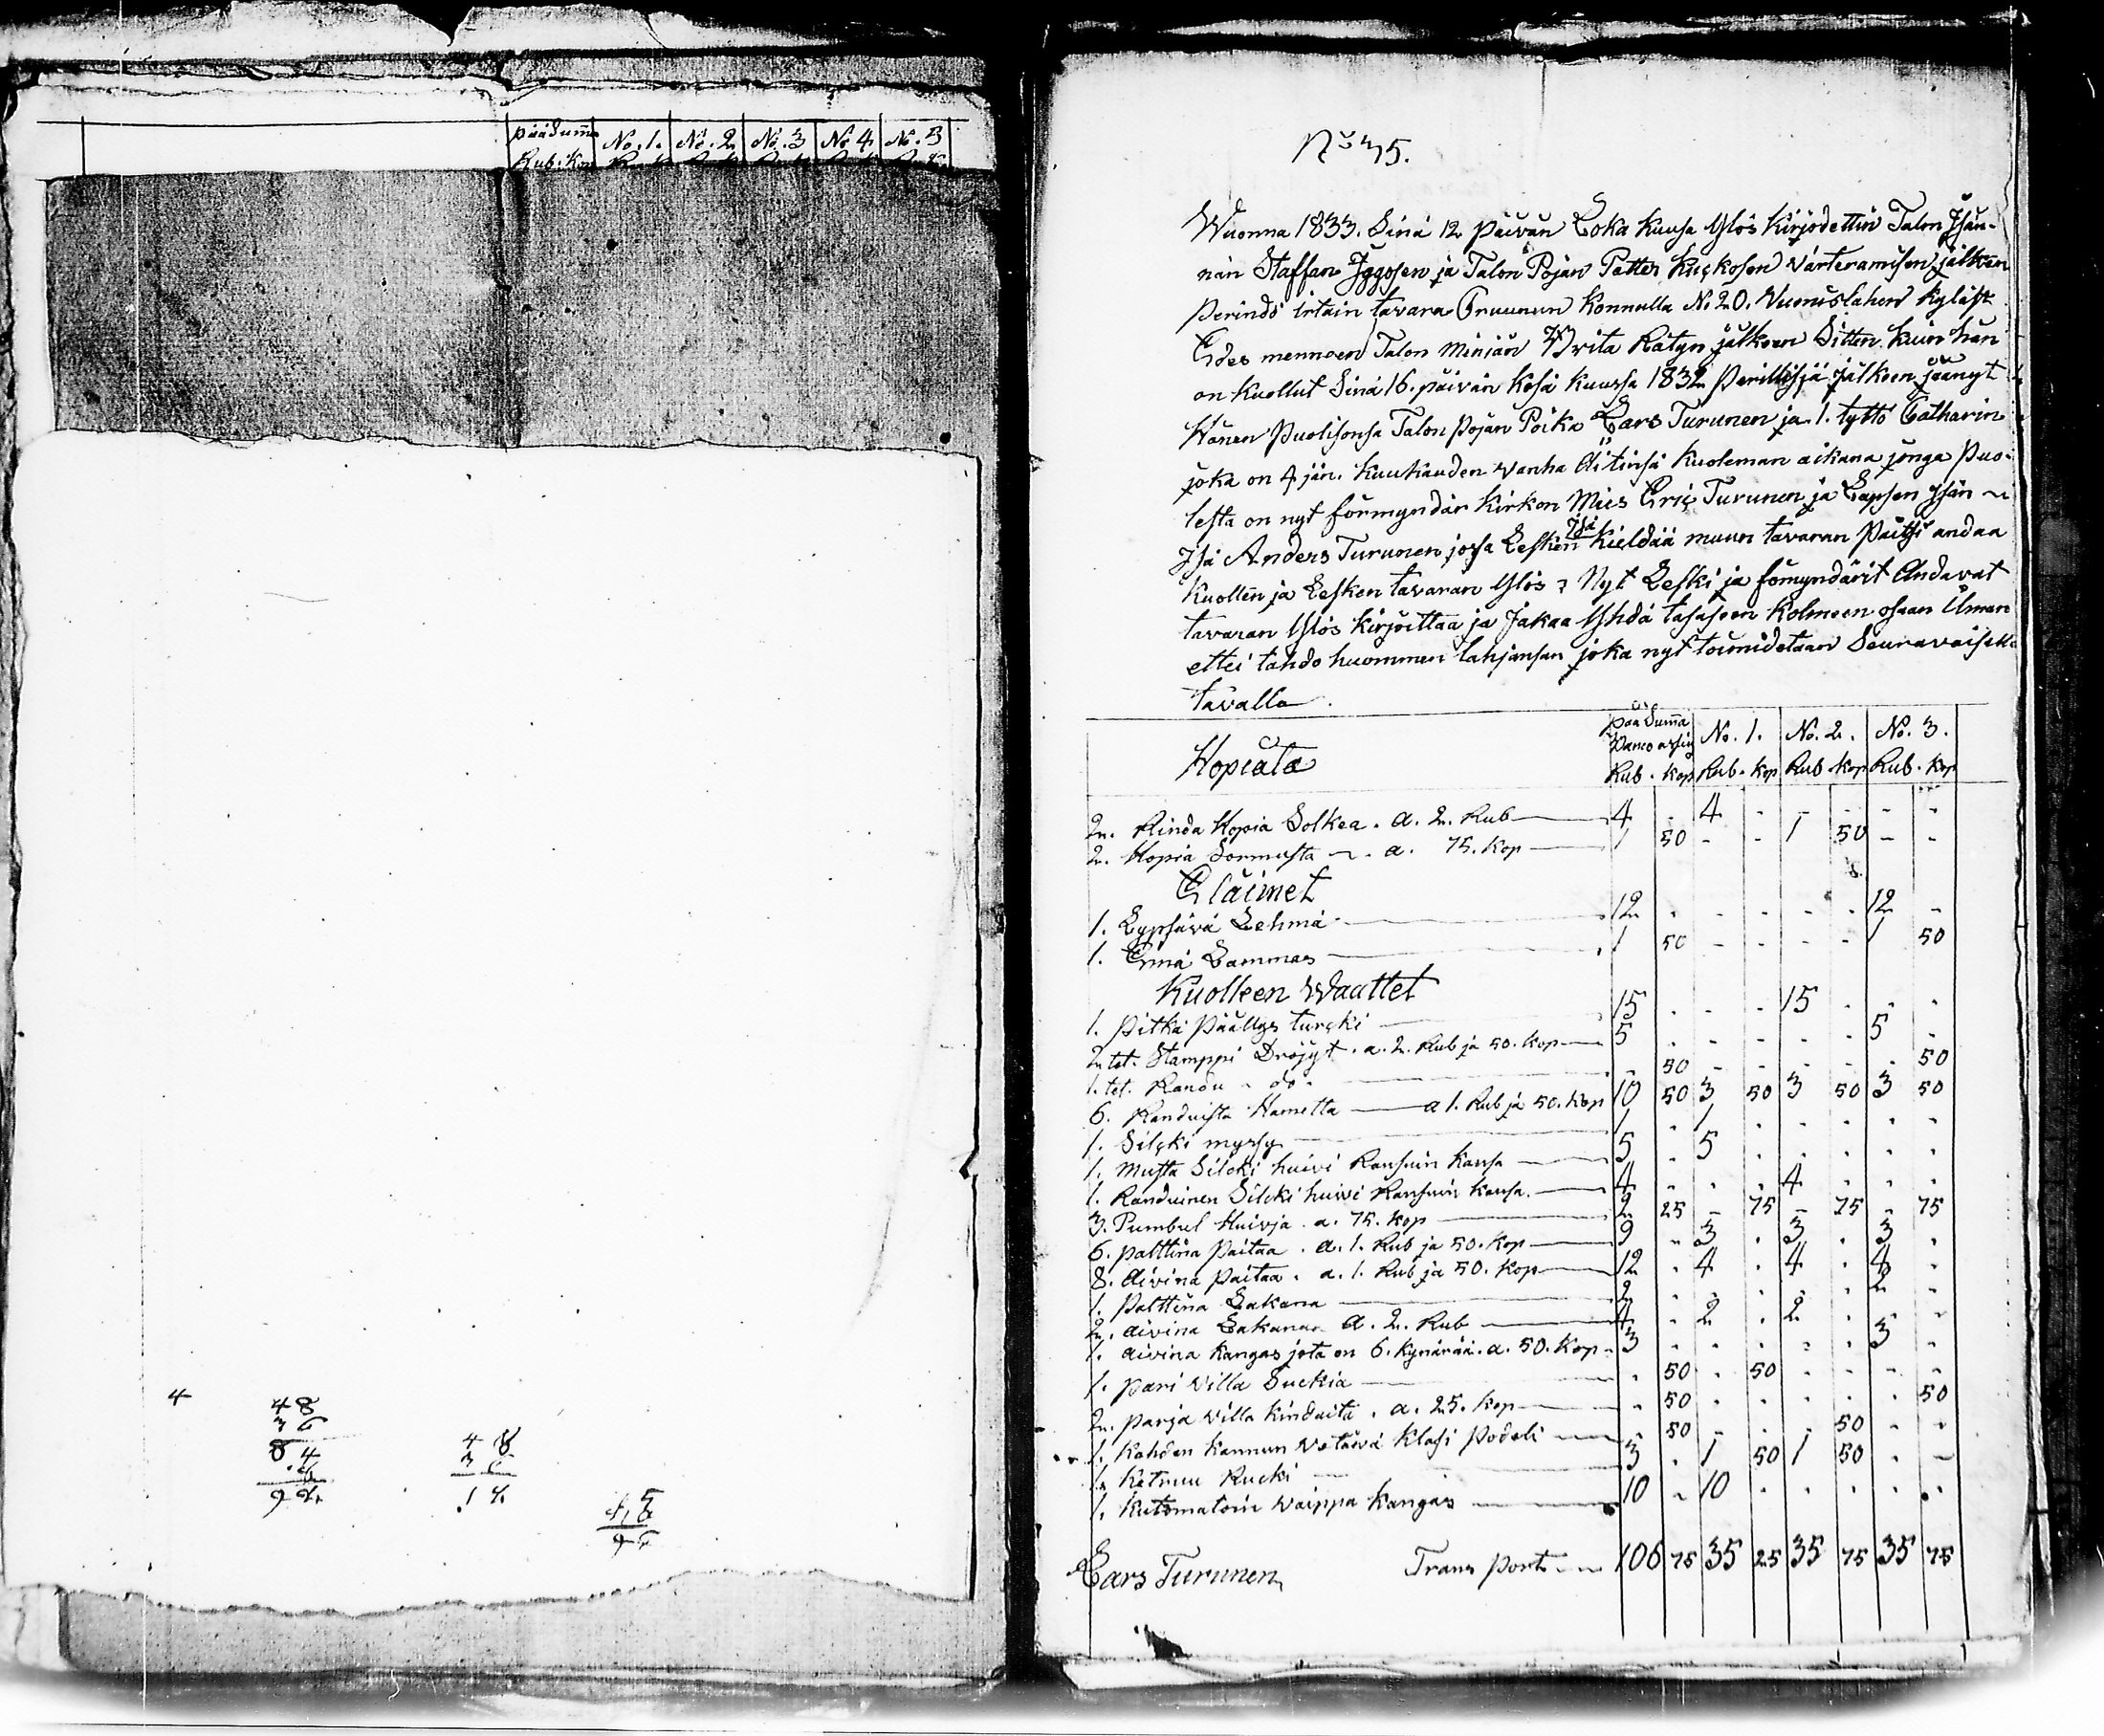 pääSum̄a No. 1. No. 2 No. 3 No 4 No. 5
Rub. Kop
4
48
36
84
92
48
14
45
96
No 35.
Wuonna 1833. Sinä 12 päivän Loka Kuusa Ylös Kirjodettiin Talon Isän-
nän Staffan Iggosen ja Talon Pojan Petter Kuckosen Värteramisen jälken
Perindö irtain tavara Cruunun Konnulla No 20. Vuonislahen Kyläst
Edes mennen Talon Miniän Brita Rätyn jälkeen Sitten kuin hän
on Kuollut Sinä 16. päivän Kesä Kuussa 1832 Perillisjä jälkeen jäänyt
Hänen Puolisonsa Talon Pojan Poika Lars Turunen ja 1. tyttö Catharin
joka on 4 jän. Kuukauden Vanha äitinsä Kuoleman aikana jonga Puo-
lesta on nyt förmyndär Kirkon Mies Eric Turunen ja Lapsen Isän
Isä Anders Turunen jossa Lesken Isä Kieldää muun tavaran Paitsi andaa
Kuollen ja Lesken tavaran Ylös ? Nyt Leski ja fömyndärit Andavat
tavaran Ylös Kirjoittaa ja Jakaa Yhdä tasaseen Kolmeen osaan Ilman
ettei tahdo huommen lahjansan joka nyt toimidetaan Seuravaisella
tavalla.
Hopiata pääSum̄a Banco assig No. 1. No. 2. No. 3.
Rub. Kop Rub. Kop Rub. Kop Rub. Kop
2. Rinda Hopia Solkea. a. 2. Rub 4 . 4 . - - - -
2. Hopia Sormusta a. 75. Kop 1 50 - - 1 50 - -
Eläimet
1. Lypsävä Lehmä 12 . - - - . 12 -
1. Emä Lammas 1 50 - - - - 1 50
Kuolleen Waattet
1. Pitkä Päällys turcki 15 . . . 15 . . .
2. tet. Stamppi Dröjyt. a. 2. Rub ja 50. Kop 5 . . . . . 5 .
1. tet. Randu do. - 50 - - - - . 50
6. Randuista Hametta a 1. Rub ja 50. Kop 10 50 3 50 3 50 3 50
1. Silcki myssy 1 . 1 . . . . .
1. Musta Silcki huivi Ransuin Kansa 5 . 5 . . . . .
1. Randuinen Silcki huivi Ransuin Kansa. 4 . . . 4 . . .
3. Pumbul Huivja. a. 75. Kop 2 25 - 75 - 75 - 75
6. palttina Paitaa. a. 1. Rub ja 50. Kop 9 . 3 . 3 . 3 .
8. aivina paitaa. a. 1. Rub ja 50. Kop 12 . 4 . 4 . 4 .
1. Palttina Lakana 2 . . . . . 2 .
2. aivina Lakanaa a. 2. Rub 4 . 2 . 2 . . .
1. aivina Kangas jota on 6. kynärää. a. 50. Kop 3 . . . . . 3 .
1. pari Villa Suckia . 50 . 50 . . . .
2. parja Villa Kinduita. a. 25. Kop . 50 . . . . . 50
1. Kahden Kannun Vetävä Klasi Podeli - 50 - . . 50 . .
1. Ketruu Rucki 3 . 1 50 1 50 . -
1. Kutomatoin Vaippa Kangas 10 . 10 . . . . .
Lars Turunen Trans port 106 75 35 25 35 75 35 75